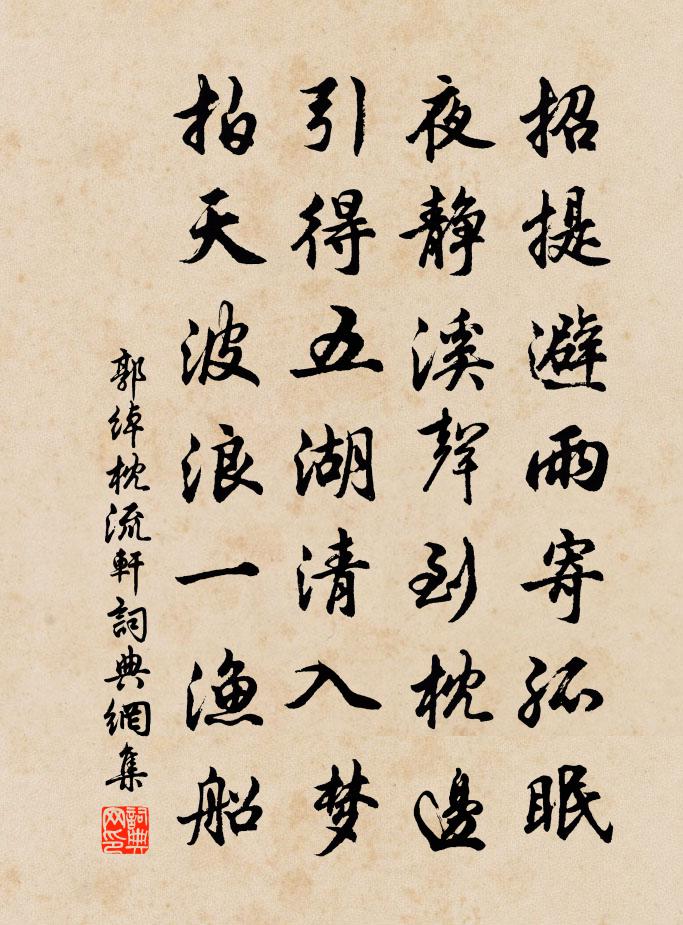 招提避雨寄孤眠
夜静溪聲到枕邊
引得五湖清入梦
拍天波浪一渔船
郭綽枕流軒詞典網集
詞典
网印